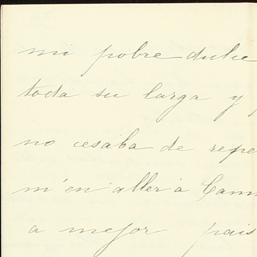 mi pobre dulce
toda su larga y
no cesaba de repe
m'en aller à Cann
a mejor pais